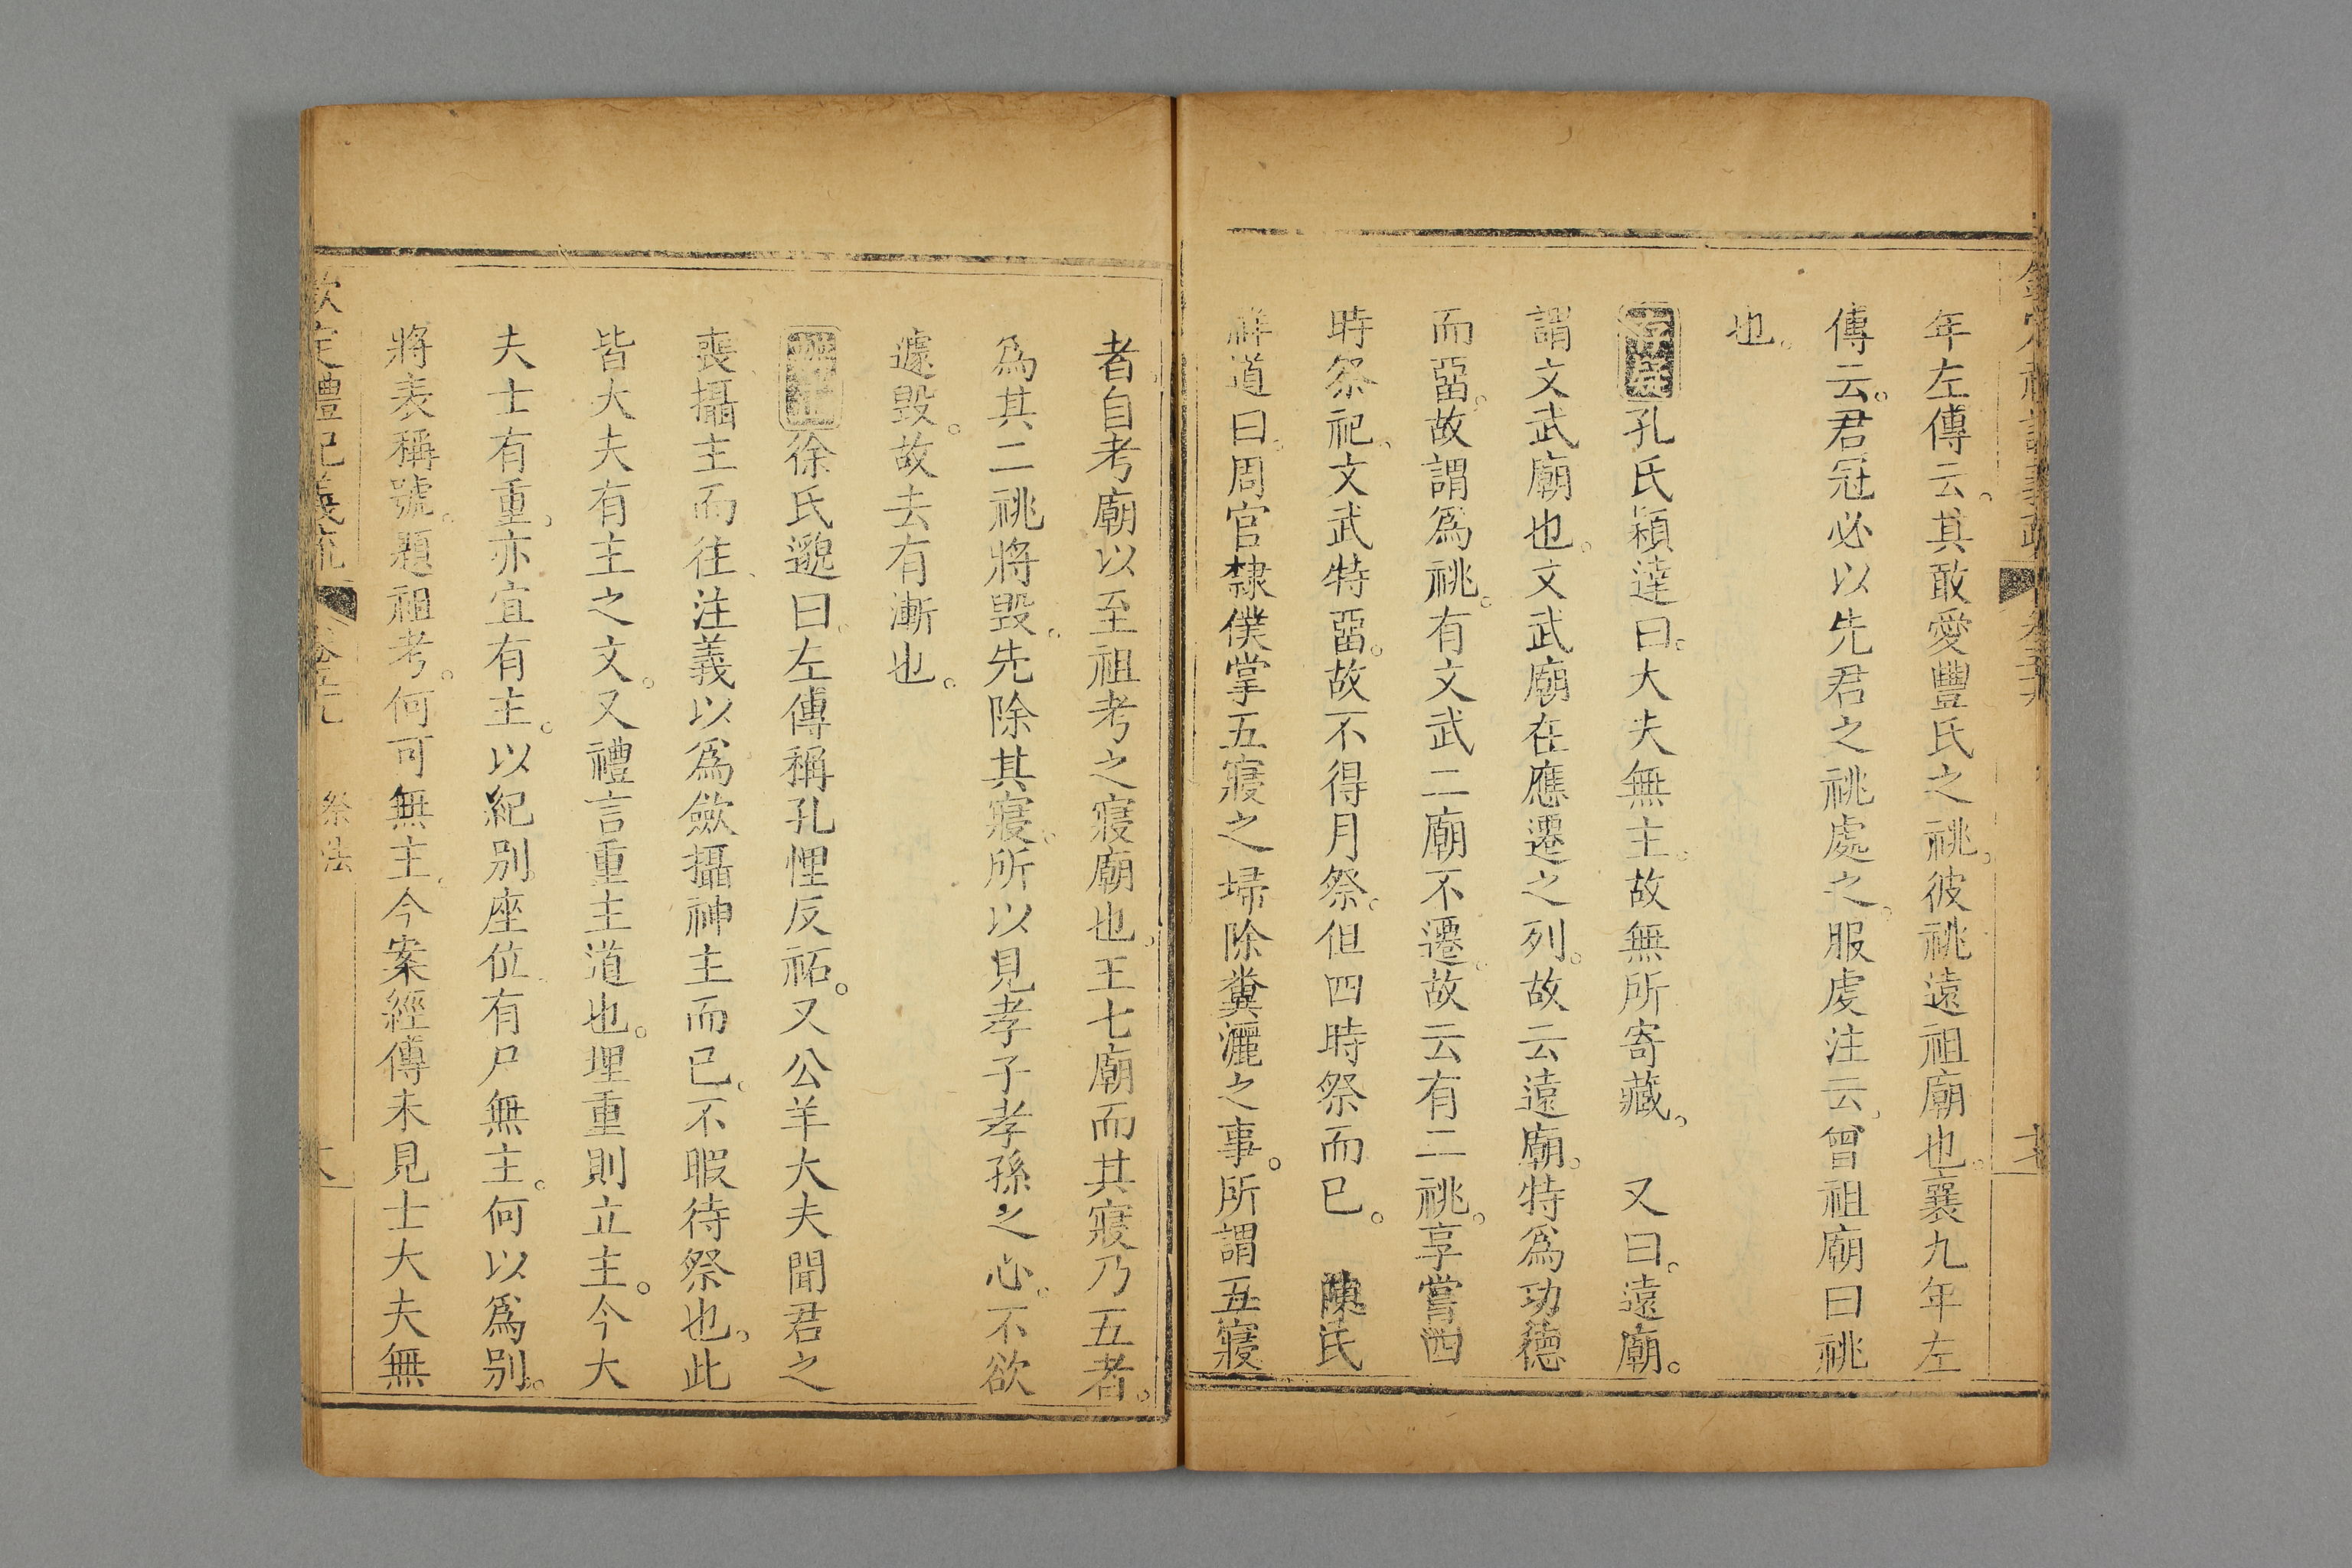 年左傳云。其敢愛豐氏之祧。彼祧遠祖廟也。襄九年左
傳云。君冠必以先君之祧處之。服虔注云。曾祖廟曰祧
也。
孔氏穎達曰。大夫無主。故無所寄藏。 又曰。遠廟。
謂文武廟也。文武廟在應遷之列。故云遠廟。特為功德
而畱。故謂爲祧。有文武二廟不遷。故云有二祧。享嘗四
時祭祀。文武特畱。故不得月祭。但四時祭而已。 陳氏
祥道曰。周官隸僕掌五寢之埽除糞灑之事。所謂五寢
者。自考廟以至祖考之寢廟也。王七廟而其寢乃五者。
爲其二祧將毀。先除其寢。所以見孝子孝孫之心。不欲
遽毀。故去有漸也。
徐氏邈曰。左傳稱孔悝反祏。又公羊大夫聞君之
喪。攝主而往。注義以爲斂攝神主而已。不暇待祭也。此
皆大夫有主之文。又禮言重主道也。埋重則立主。今大
夫士有重。亦宜有主。以紀別座位。有尸無主。何以爲別。
將表稱號。題祖考。何可無主。今案經傳未見士大夫無
欽定禮記義疏
祭法